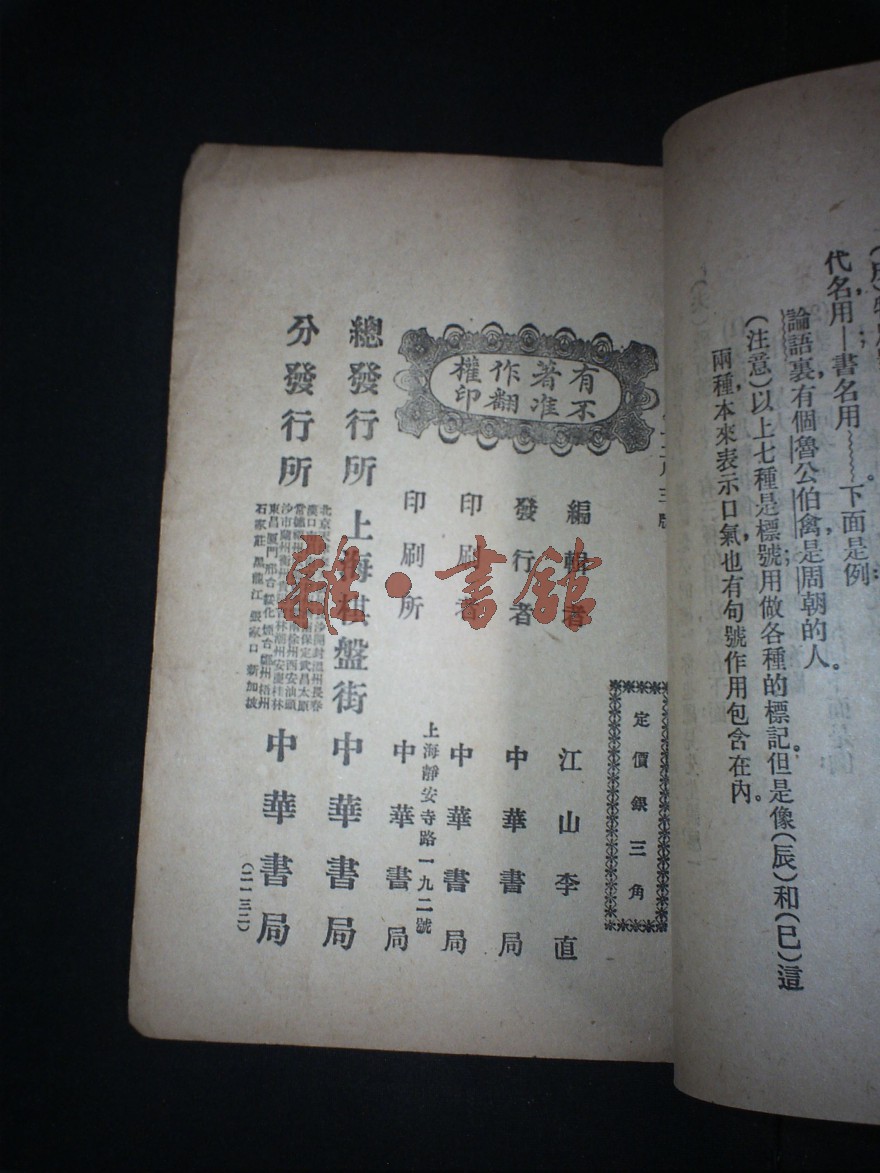 代名,用—書名用﹏﹏。下面是例;
論語裏,有個魯公伯禽,是周朝的人。
(注意)以上七種是標號;用做各種的標記。但是像(辰)和(巳)這
兩種,本來表示口氣,也有句號作用包含在內。
月三版
定價銀三角
有著作權
不准翻印
編輯者 江山李直
發行者 中華書局
印刷者 中華書局
上海靜安寺路一九二號
印刷所 中華書局
總發行所 上海棋盤街 中華書局
分發行所
開封溫州長春
保定武昌太原
徐州西安汕頭
潮州安慶桂林
東昌廈門邢台綏化煙台鄭州梧州
石家莊 黑龍江 張家口 新加坡
中華書局
(二一三二)
雜·書館